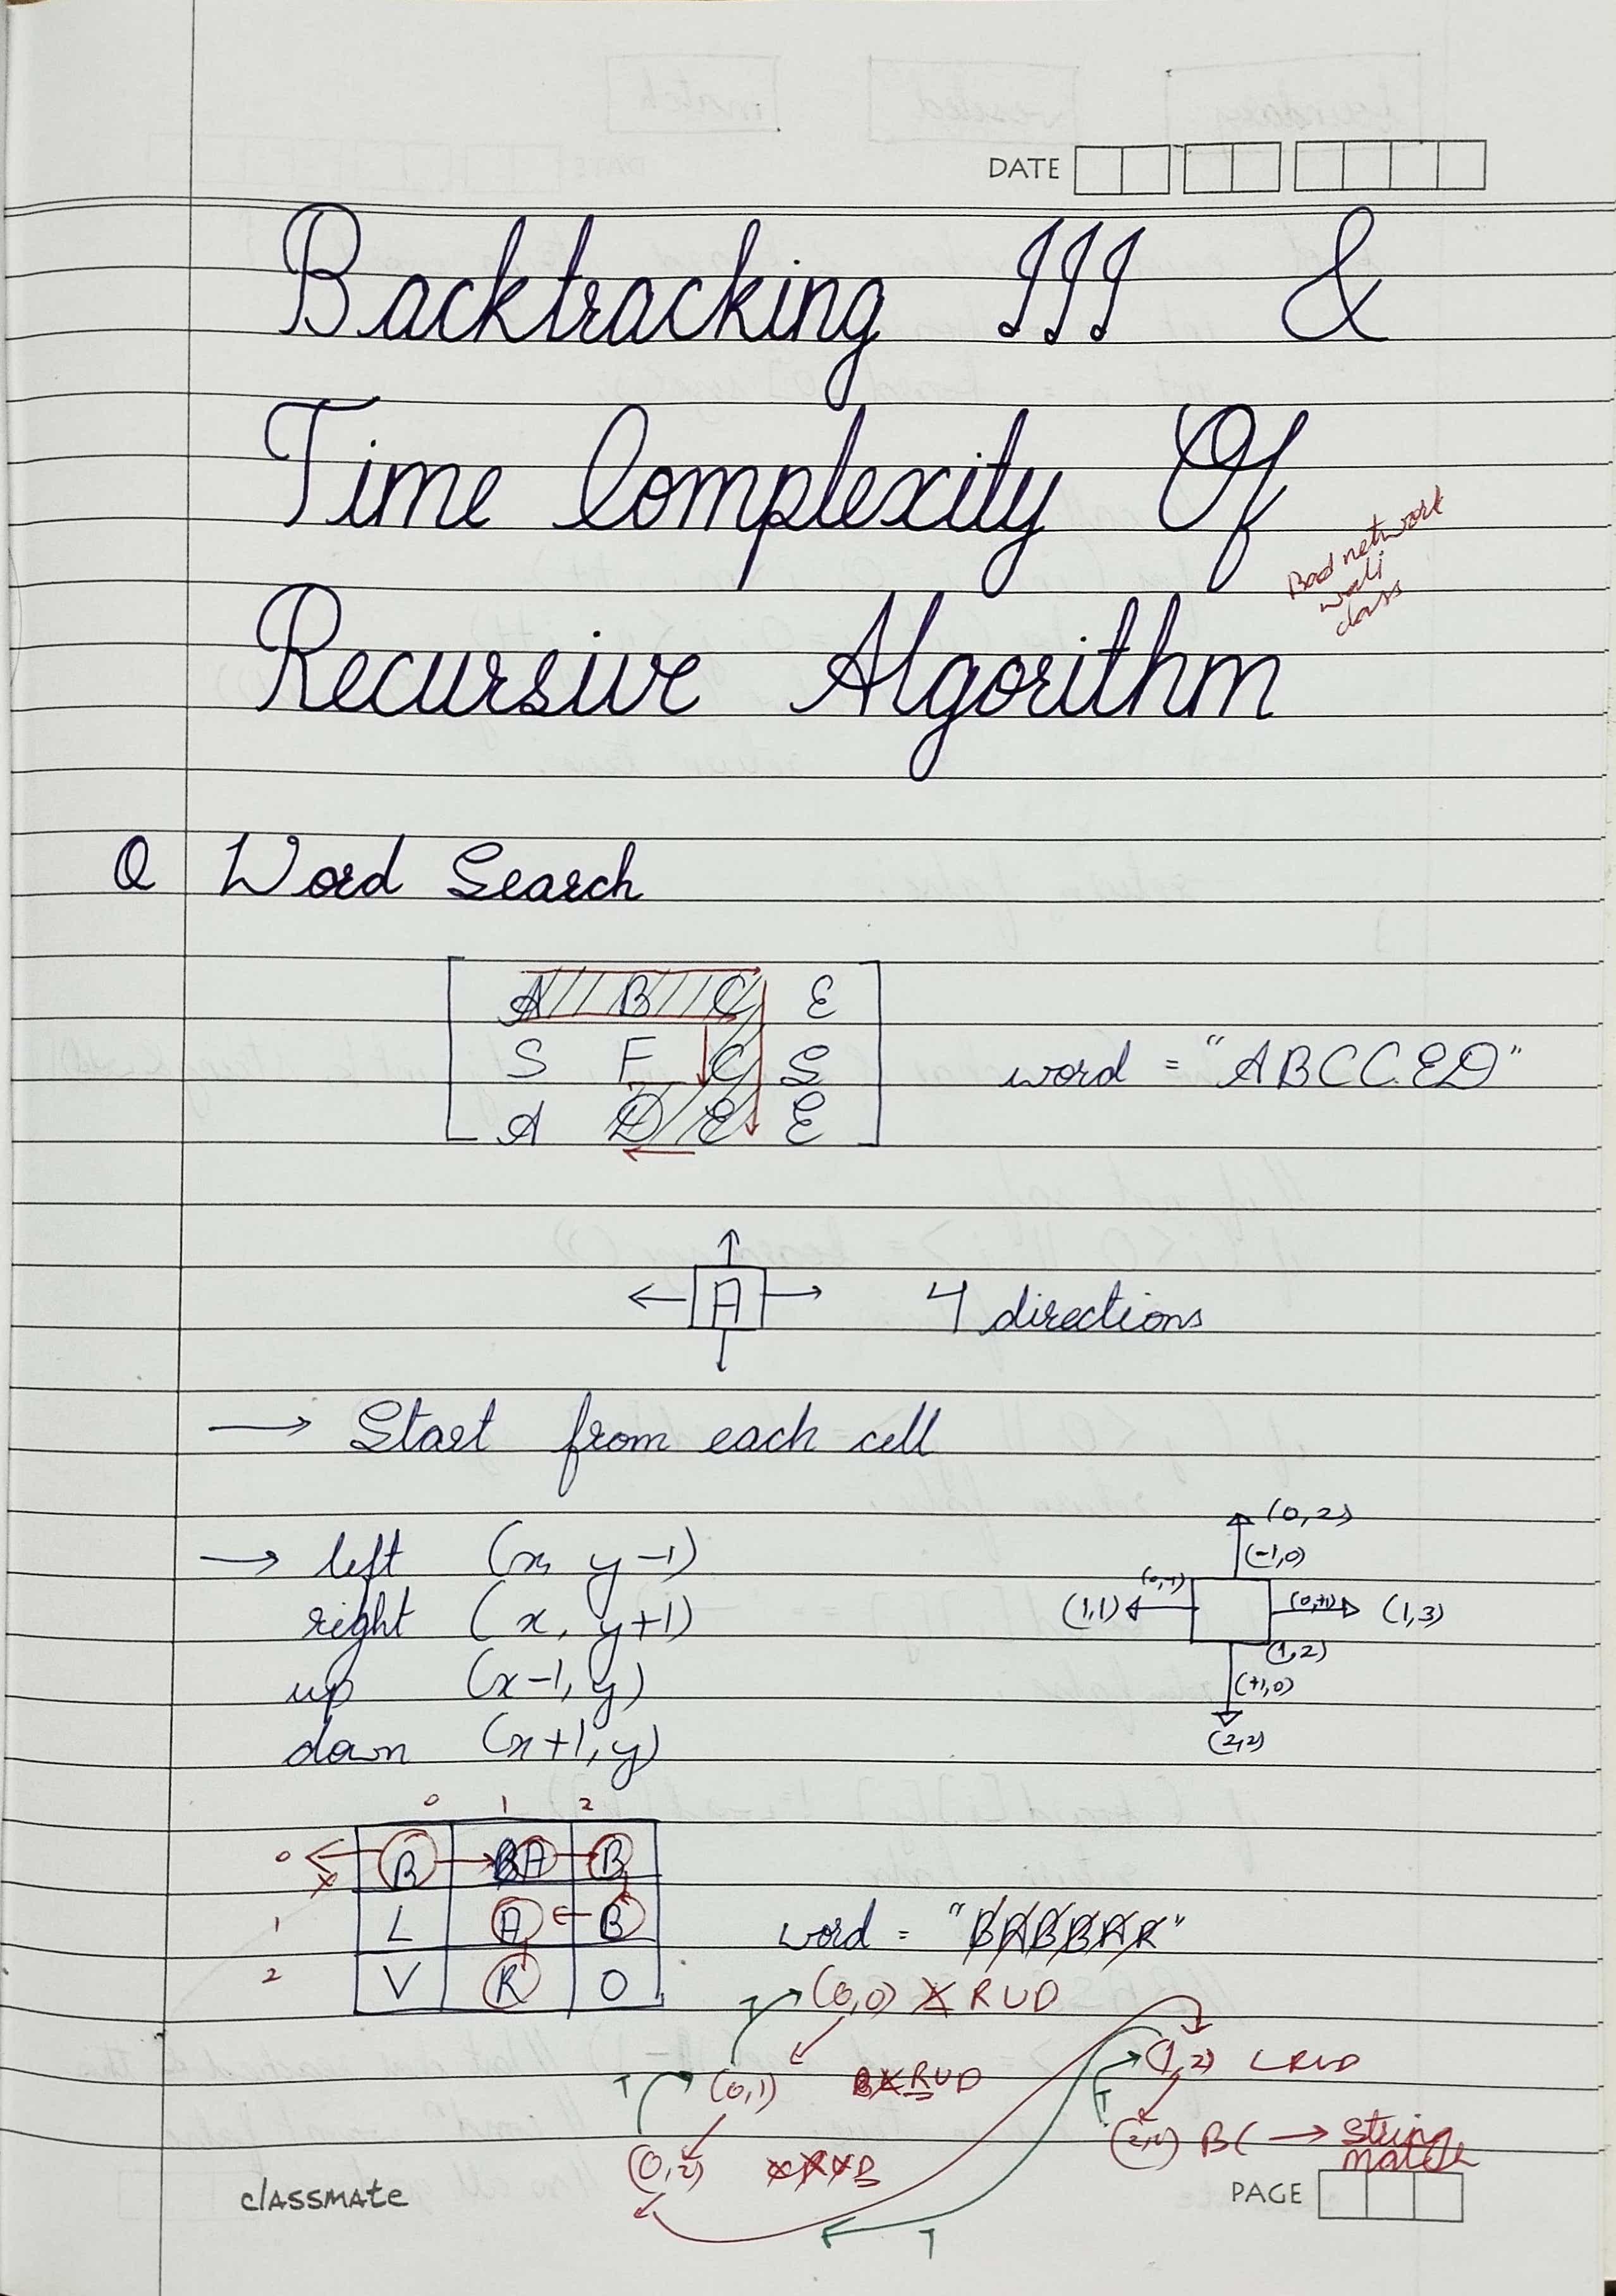 DATE
Backtracking III &
Time Complexity Of
Bad network
wali
class
Recursive Algorithm
Q Word Search
A B C E
S F C S
A D E E
word = "ABCCED"
A
4 directions
→ Start from each cell
→ left (x, y-1)
right (x, y+1)
up (x-1, y)
down (x+1, y)
(0,2)
(-1,0)
(0,-1)
(1,1)
(0,+1)
(1,3)
(1,2)
(+1,0)
(2,2)
0 1 2
0 B A B
x
1 L A B
2 V R O
word = "BABBAR"
(0,0) L R U D
T
(0,1) L R U D
T
(0,2) L R U D
(1,2) L R U D
T
BC → String
match
T
classmate
PAGE